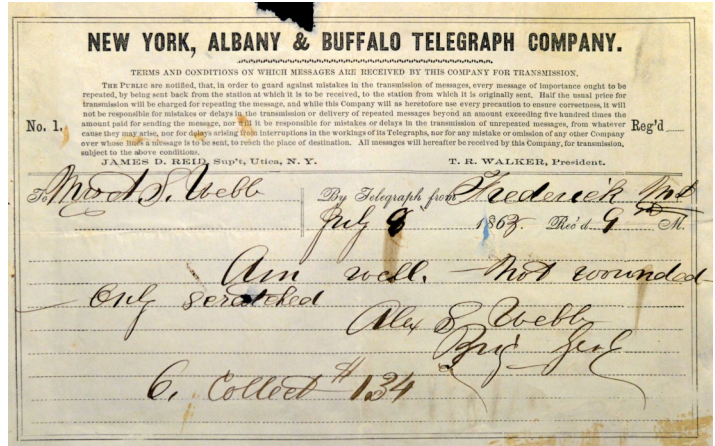 NEW YORK, ALBANY & BUFFALO TELEGRAPH COMPANY.
TERMS AND CONDITIONS ON WHICH MESSAGES ARE RECEIVED BY THIS COMPANY FOR TRANSMISSION.
THE PUBLIC are notified, that, in order to guard against mistakes in the transmission of messages, every message of importance ought to be
repeated, by being sent back from the station at which it is to be received, to the station from which it is originally sent. Half the usual price for
transmission will be charged for repeating the message, and while this Company will as heretofore use every precaution to ensure correctness, it will
not be responsible for mistakes or delays in the transmission or delivery of repeated messages beyond an amount exceeding five hundred times the
amount paid for sending the message, nor will it be responsible for mistakes or delays in the transmission of unrepeated messages, from whatever
cause they may arise, nor for delays arising from interruptions in the workings of its Telegraphs, nor for any mistake or omission of any other Company
over whose lines a message is to be sent, to reach the place of destination. All messages will hereafter be received by this Company, for transmission,
subject to the above conditions.
No. 1.
Reg'd
JAMES D. REID, Sup't, Utica, N. Y. T. R. WALKER, President.
To Mrs A. S. Webb By Telegraph from Frederick Md
July 8 1863 Rec'd 9 M.
Am well. Not wounded
Only scratched
Alex S Webb
Brig Genl
6, Collect # 1.34